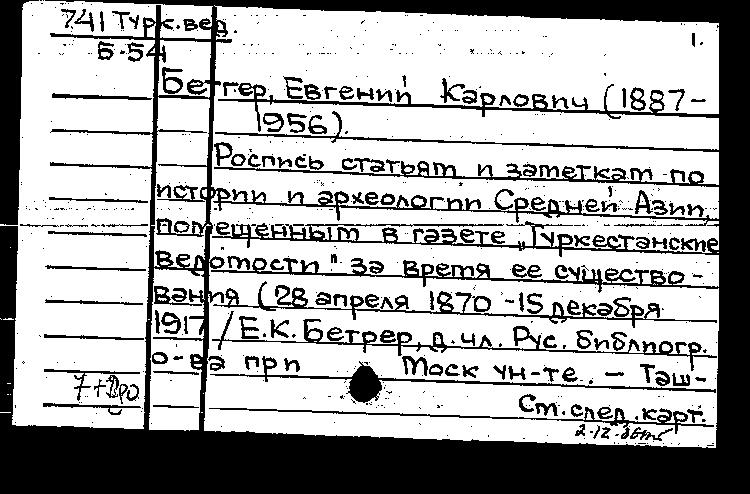 741 Турк.вед.
Б-54
1.
Бетгер, Евгений Карлович (1887-
1956).
Роспись статьям и заметкам по
истории и археологии Средней Азии,
помещенным в газете „Туркестанские
ведомости" за время ее существо-
вания (28 апреля 1870 - 15 декабря
1917 / Е.К. Бетгер, д.чл. Рус. библиогр.
о-ва при Моск ун-те. – Таш-
7+
См. след. карт.